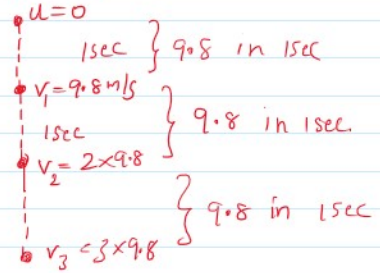 u=0
1sec } 9.8 in 1sec
v₁=9.8m/s
1sec } 9.8 in 1sec.
v₂= 2×9.8
} 9.8 in 1sec
v₃=3×9.8